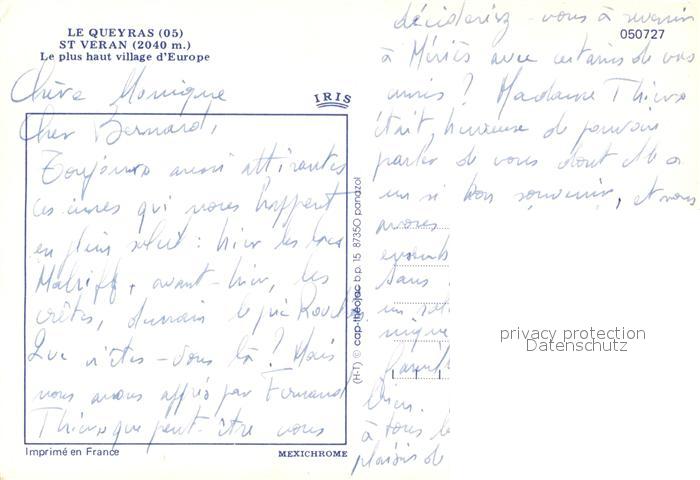 LE QUEYRAS (05)
ST VERAN (2040 m.)
Le plus haut village d'Europe
Chère Monique
Cher Bernard,
Toujours aussi attirantes
ces cimes qui nous happent
en plein soleil : hier les lacs
Malrif, avant-hier, les
crêtes, demain le pic
Que n'êtes-vous là ? Mais
nous avons appris par Fernand
que peut-être vous
décideriez-vous à revenir
à avec certains de vos
amis ? Madame
était heureuse de pouvoir
parler de vous dont elle a
un si bon souvenir, et nous
avons
sans
un
à tous
plaisir de
050727
IRIS
(H-T) © cap-théojac b.p. 15 87350 panazol
privacy protection
Datenschutz
Imprimé en France
MEXICHROME